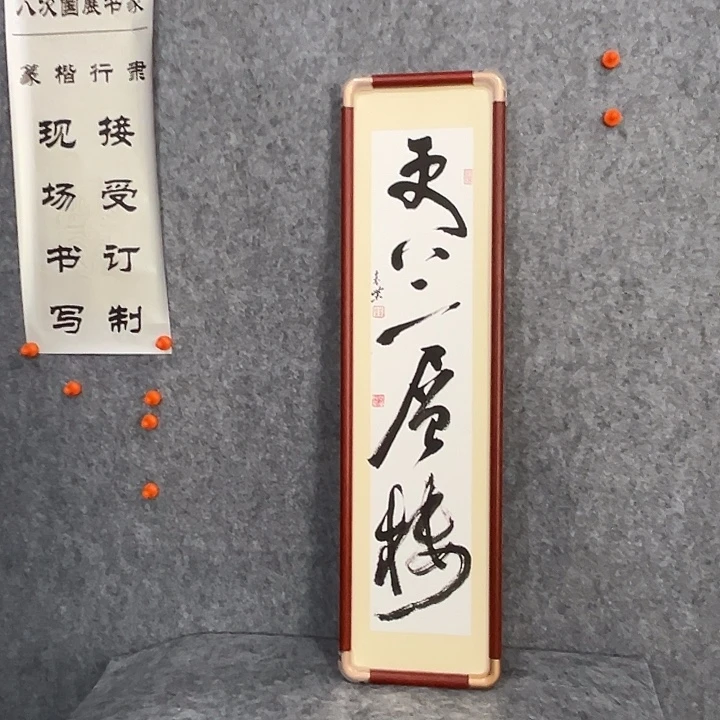 八次國展书家
篆楷行隶
接受订制
现场书写
更上一层楼